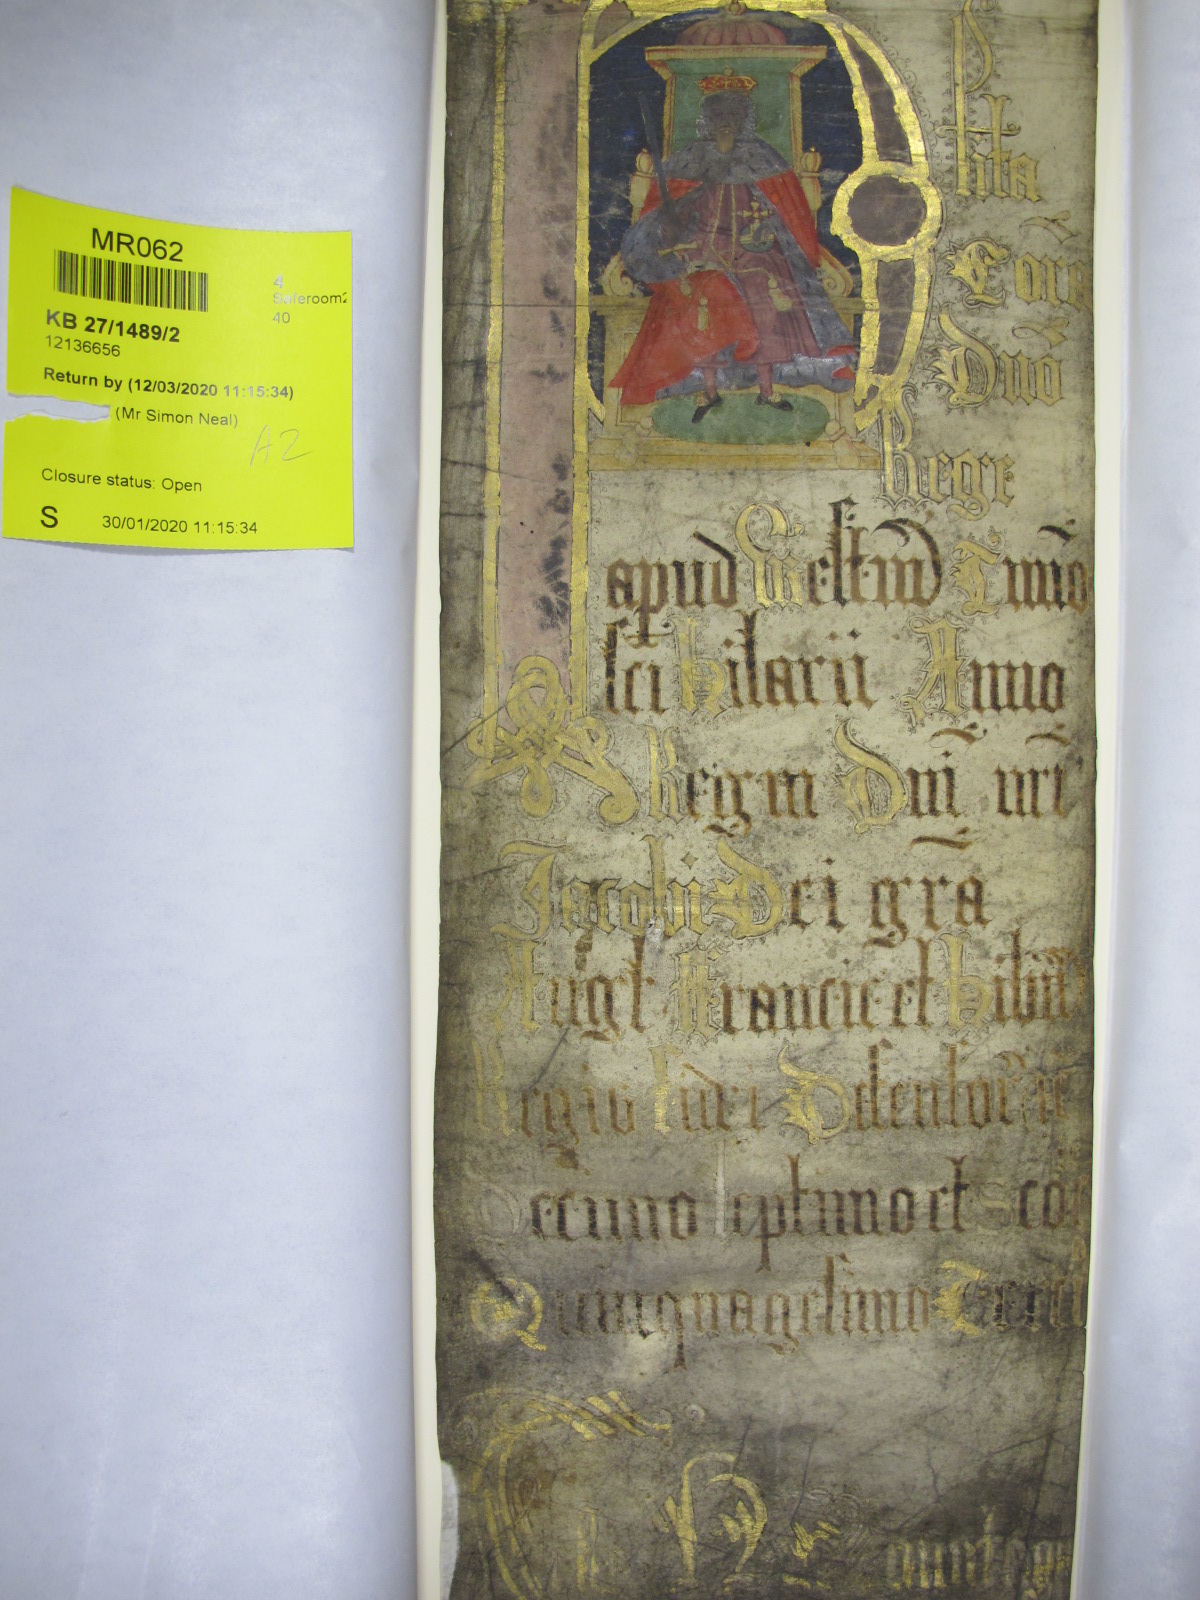 MR062
4
Saferoom2
40
KB 27/1489/2
12136656
Return by (12/03/2020 11:15:34)
(Mr Simon Neal)
A2
Closure status: Open
S 30/01/2020 11:15:34
Plita
Cora
Dno
Rege
apud Westm̃ Tmio
sci Hilarii Anno
Regni Dni nri
Jacobi Dei gra
Angl Francie et Hibnie
Regis fidei Defensor
Decimo septimo et Scoc
Quinquagesimo Tercio